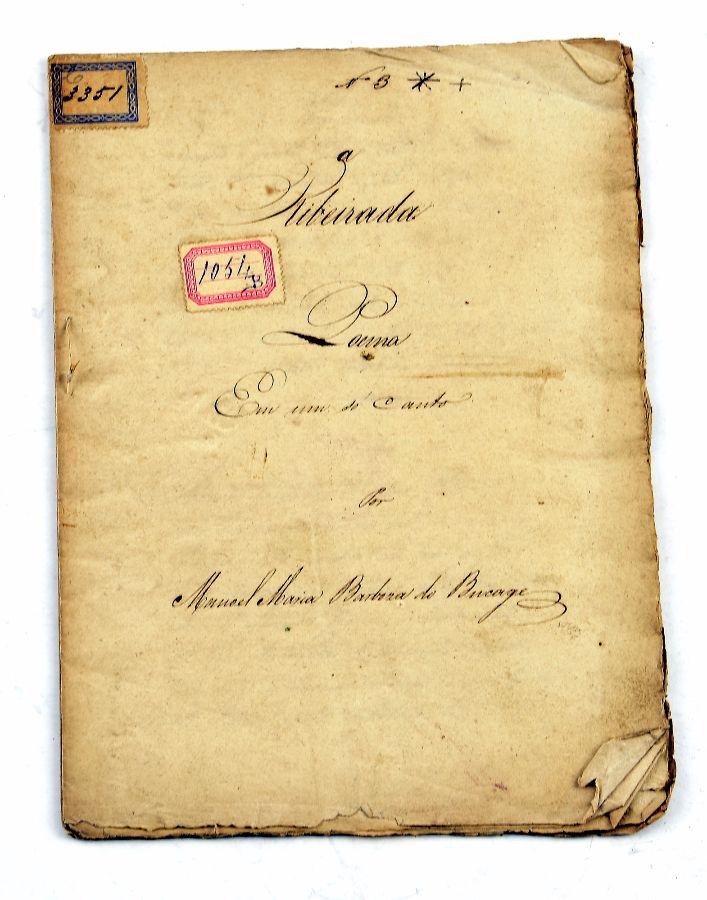 3351
Nº 3 * +
a
Ribeirada
1051
Poema
Em um só canto
Por
Manoel Maria Barboza do Bucage